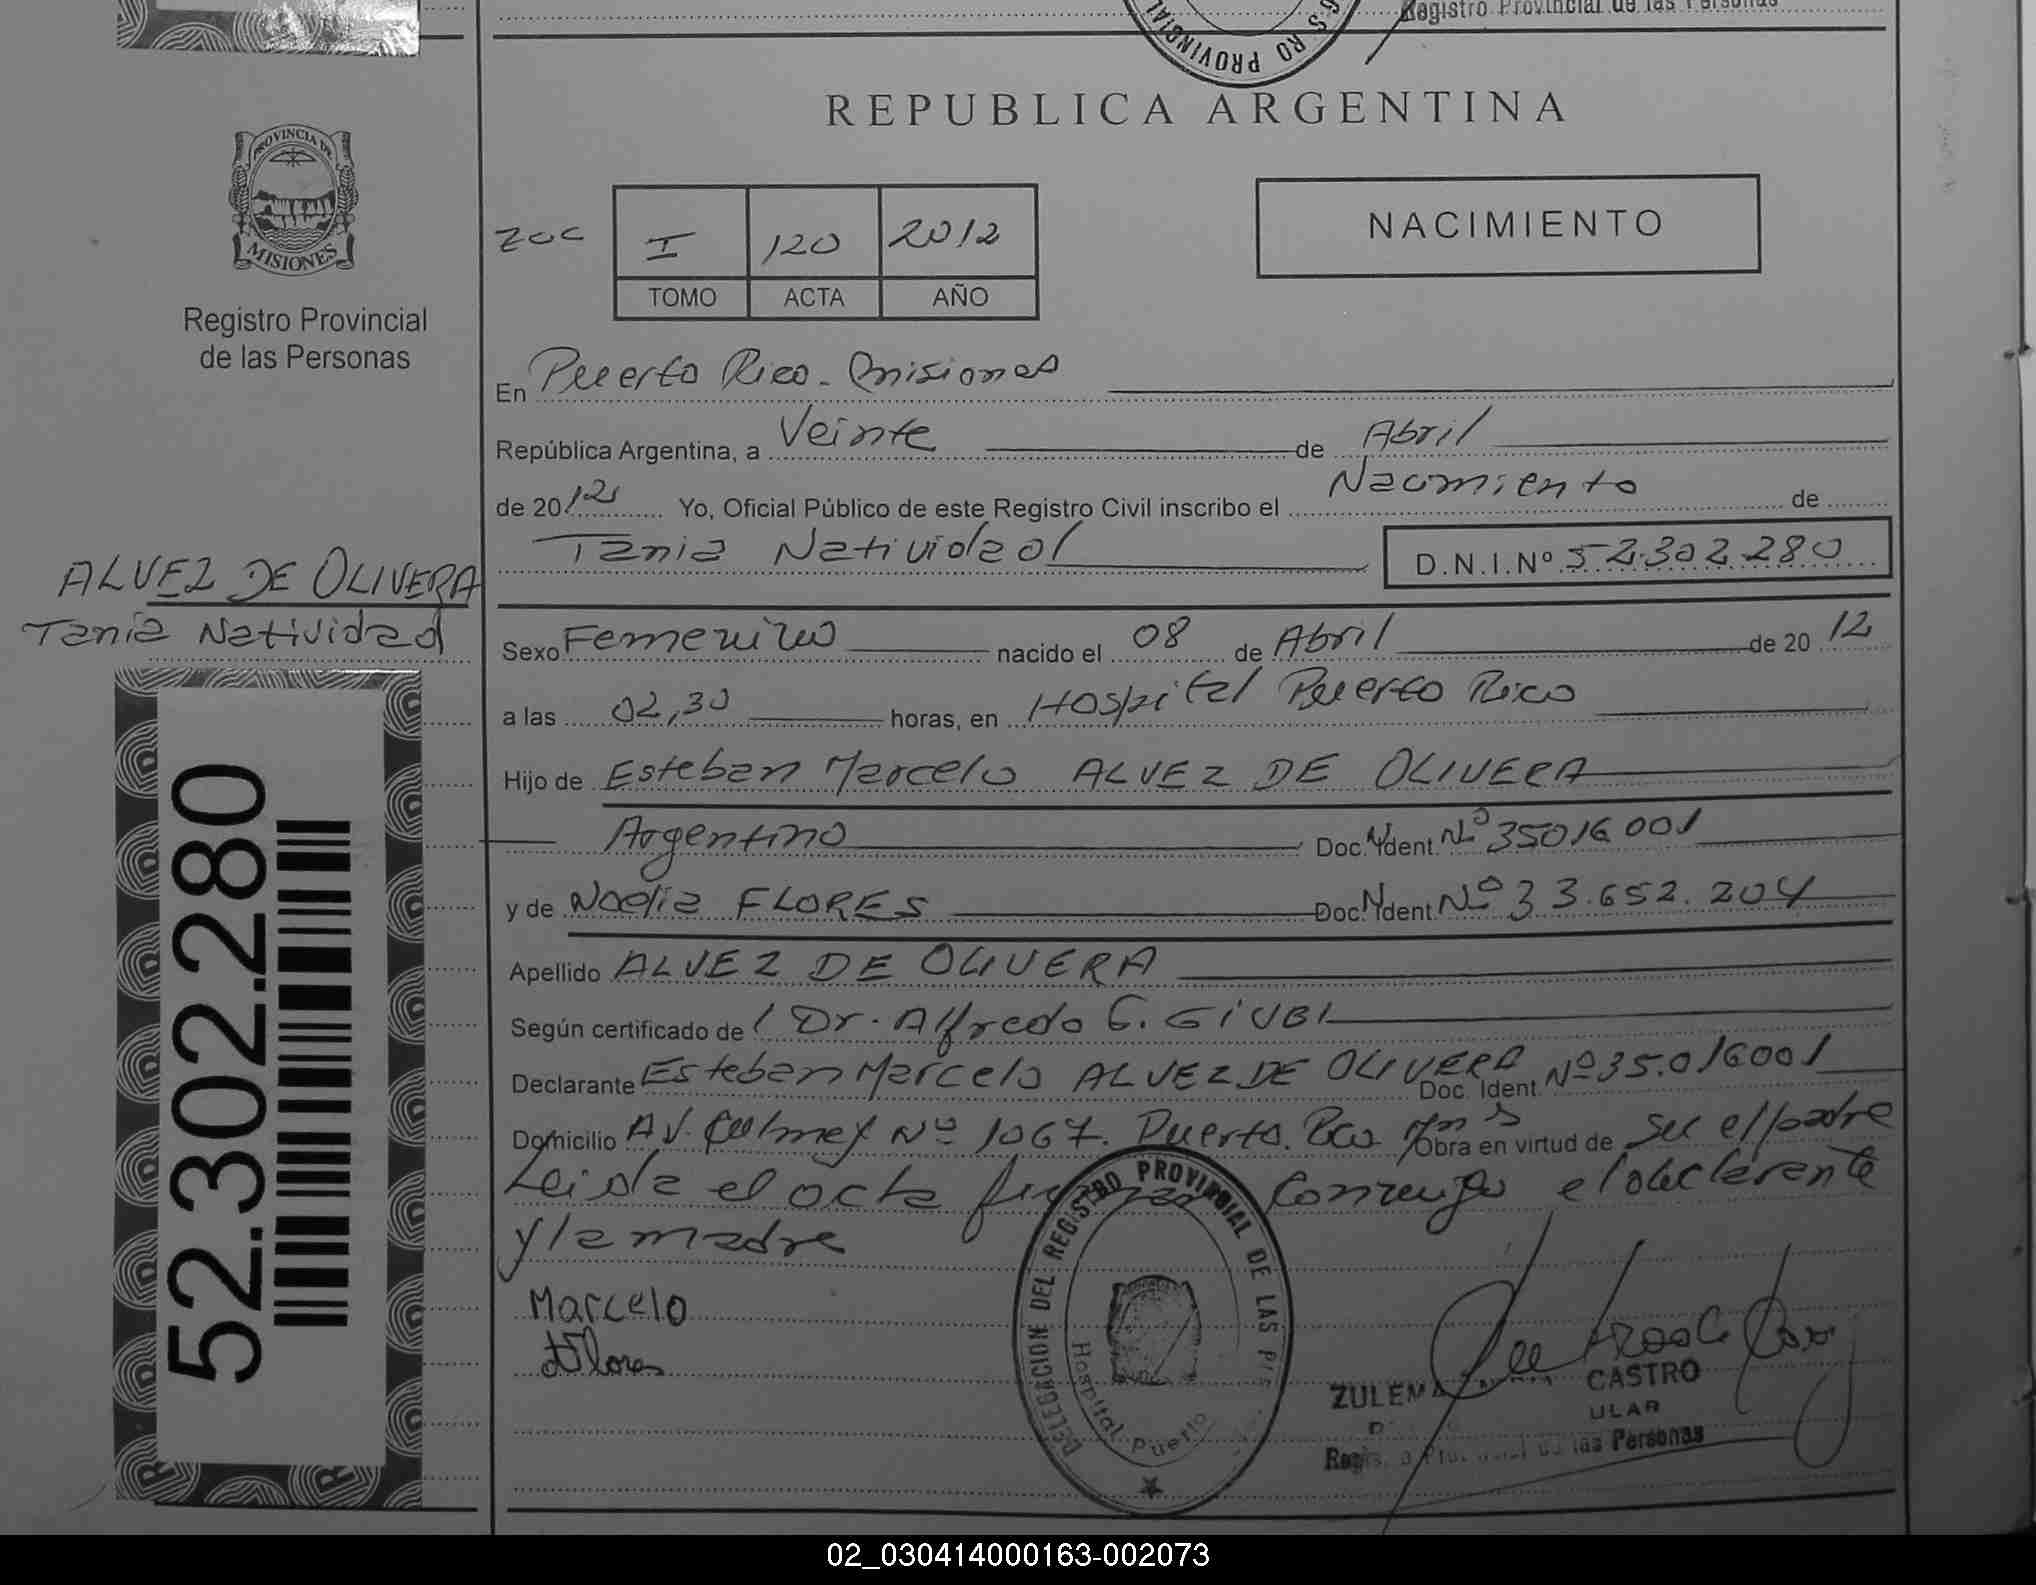 Registro Provincial de las Personas
REPUBLICA ARGENTINA
PROVINCIA DE
MISIONES
Registro Provincial
de las Personas
ZOC I 120 2012
TOMO ACTA AÑO
NACIMIENTO
En Puerto Rico - Misiones
República Argentina, a Veinte de Abril
de 2012 Yo, Oficial Público de este Registro Civil inscribo el Nacimiento de
Tania Natividad D.N.I.Nº 52.302.280
ALVEZ DE OLIVERA
Tania Natividad
Sexo Femenino nacido el 08 de Abril de 2012
a las 02,30 horas, en Hospital Puerto Rico
Hijo de Esteban Marcelo ALVEZ DE OLIVERA
Argentino Doc. Ident. Nº 35016001
y de Nadia FLORES Doc. Ident. Nº 33.652.204
Apellido ALVEZ DE OLIVERA
Según certificado de Dr. Alfredo G. GIUBI
Declarante Esteban Marcelo ALVEZ DE OLIVERA Doc. Ident. Nº 35.016001
Domicilio Av. Culmey Nº 1067. Puerto Rico Mnes Obra en virtud de ser el padre
Leida el acta firman conmigo el declarante
y la madre
Marcelo
Flores
52.302.280
DELEGACION DEL REGISTRO PROVINCIAL DE LAS
Hospital Puerto
ZULEMA CASTRO
ULAR
las Personas
02_030414000163-002073